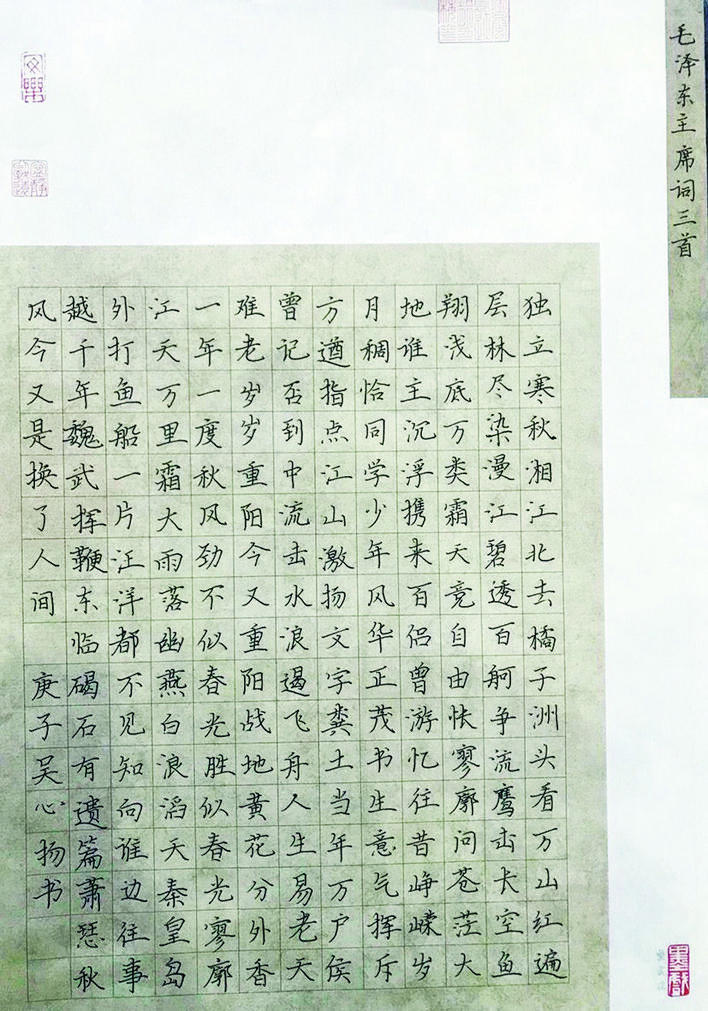 毛泽东主席词三首
独立寒秋湘江北去橘子洲头看万山红遍
层林尽染漫江碧透百舸争流鹰击长空鱼
翔浅底万类霜天竞自由怅寥廓问苍茫大
地谁主沉浮携来百侣曾游忆往昔峥嵘岁
月稠恰同学少年风华正茂书生意气挥斥
方遒指点江山激扬文字粪土当年万户侯
曾记否到中流击水浪遏飞舟人生易老天
难老岁岁重阳今又重阳战地黄花分外香
一年一度秋风劲不似春光胜似春光寥廓
江天万里霜大雨落幽燕白浪滔天秦皇岛
外打鱼船一片汪洋都不见知向谁边往事
越千年魏武挥鞭东临碣石有遗篇萧瑟秋
风今又是换了人间 庚子吴心扬书